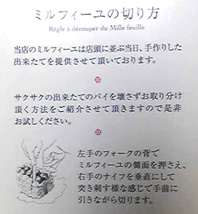 ミルフィーユの切り方
Règle à découper du Mille feuille
当店のミルフィーユは店頭に並ぶ当日、手作りした
出来たてを提供させて頂いております。
サクサクの出来たてのパイを壊さずお取り分け
頂く方法をご紹介させて頂きますので是非
お試しください。
左手のフォークの背で
ミルフィーユの側面を押さえ、
右手のナイフを垂直にして
突き刺す様な感じで手前に
引きながら切ります。